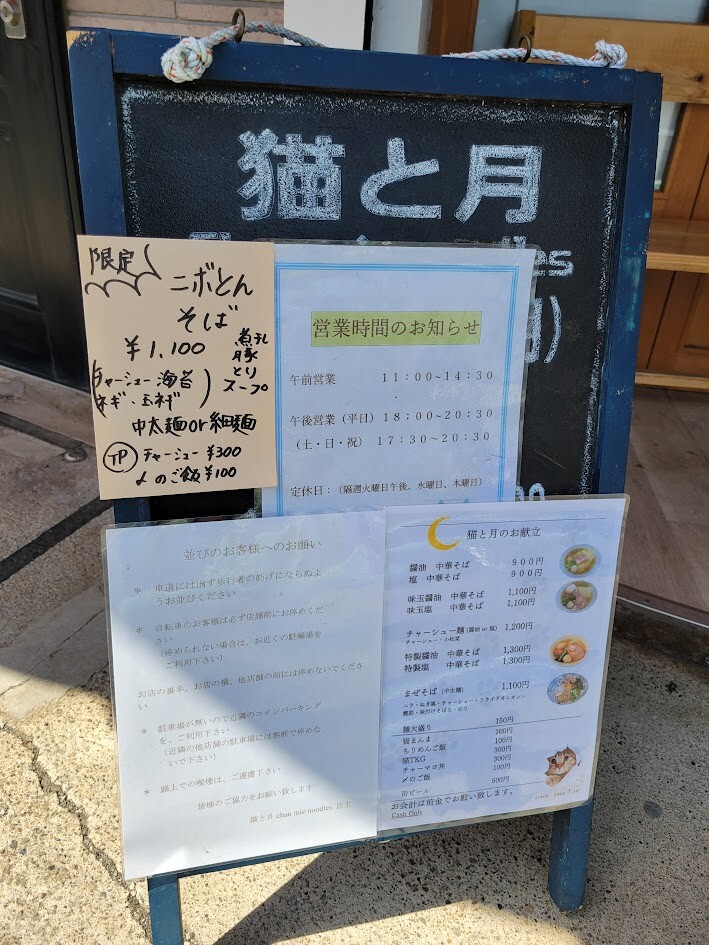 猫と月
限定
ニボとん
そば
￥1,100
煮干し
豚
とり
スープ
(チャーシュー・海苔
ネギ・玉ネギ)
中太麺or細麺
TP チャーシュー ￥300
〆のご飯 ￥100
営業時間のお知らせ
午前営業 11:00~14:30
午後営業（平日）18:00~20:30
（土・日・祝）17:30~20:30
定休日：（隔週火曜日午後、水曜日、木曜日）
並びのお客様へのお願い
＊ 車道には出ず歩行者の妨げにならぬよ
うお並びください
＊ 自転車のお客様は必ず店舗前にお停めくだ
さい
（停められない場合は、お近くの駐輪場を
ご利用下さい）
お店の裏手、お店の横、他店舗の前には停めないでくださ
い
＊ 駐車場が無いので近隣のコインパーキング
を、ご利用下さい
（近隣の他店舗の駐車場には無断で停めな
いで下さい）
＊ 路上での喫煙は、ご遠慮下さい
皆様のご協力をお願い致します
猫と月 chan mie noodles 店主
猫と月のお献立
醤油 中華そば 900円
塩 中華そば 900円
味玉醤油 中華そば 1,100円
味玉塩 中華そば 1,100円
チャーシュー麺（醤油 or 塩） 1,200円
チャーシュー・小松菜
特製醤油 中華そば 1,300円
特製塩 中華そば 1,300円
まぜそば（中太麺） 1,100円
ニラ・ねぎ・チャーシュー・フライドオニオン・
麺大盛り 150円
猫まんま 100円
ちりめんご飯 100円
猫TKG 300円
チャーマヨ丼 300円
〆のご飯 100円
缶ビール 500円
お会計は前金でお願い致します。
Cash Only